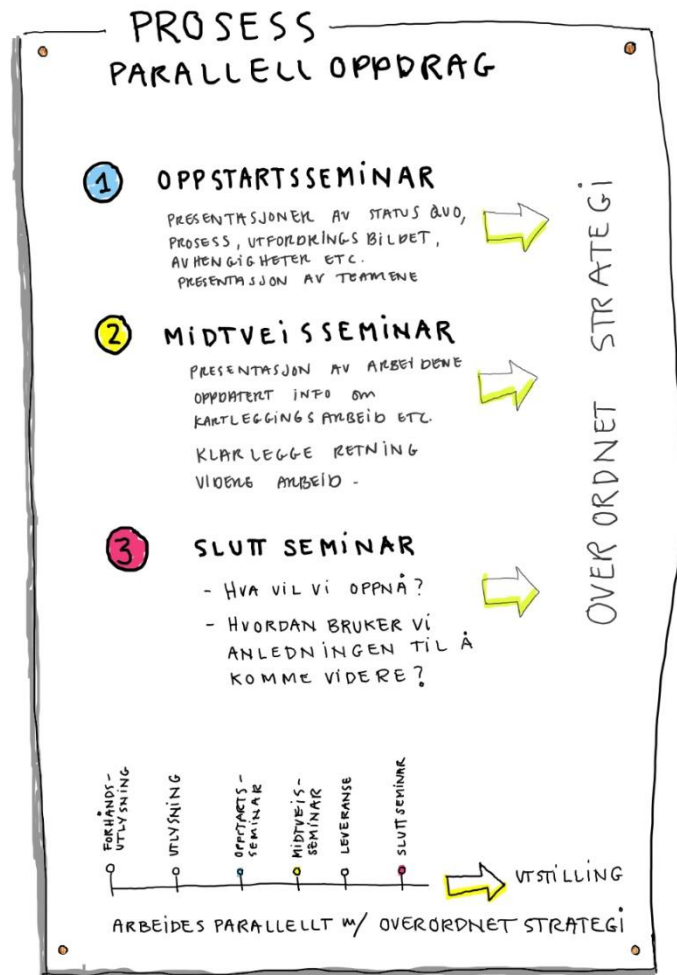 PROSESS
PARALLELL OPPDRAG
1 OPPSTARTSSEMINAR
PRESENTASJONER AV STATUS QUO,
PROSESS, UTFORDRINGS BILDET,
AVHENGIGHETER ETC.
PRESENTASJON AV TEAMENE
2 MIDTVEISSEMINAR
PRESENTASJON AV ARBEIDENE
OPPDATERT INFO OM
KARTLEGGINGS ARBEID ETC.
KLARLEGGE RETNING
VIDERE ARBEID -
3 SLUTT SEMINAR
- HVA VIL VI OPPNÅ?
- HVORDAN BRUKER VI
ANLEDNINGEN TIL Å
KOMME VIDERE?
OVER ORDNET STRATEGI
FORHÅNDS-
UTLYSNING
UTLYSNING
OPPTARTS-
SEMINAR
MIDTVEIS-
SEMINAR
LEVERANSE
SLUTTSEMINAR
UTSTILLING
ARBEIDES PARALLELLT m/ OVERORDNET STRATEGI